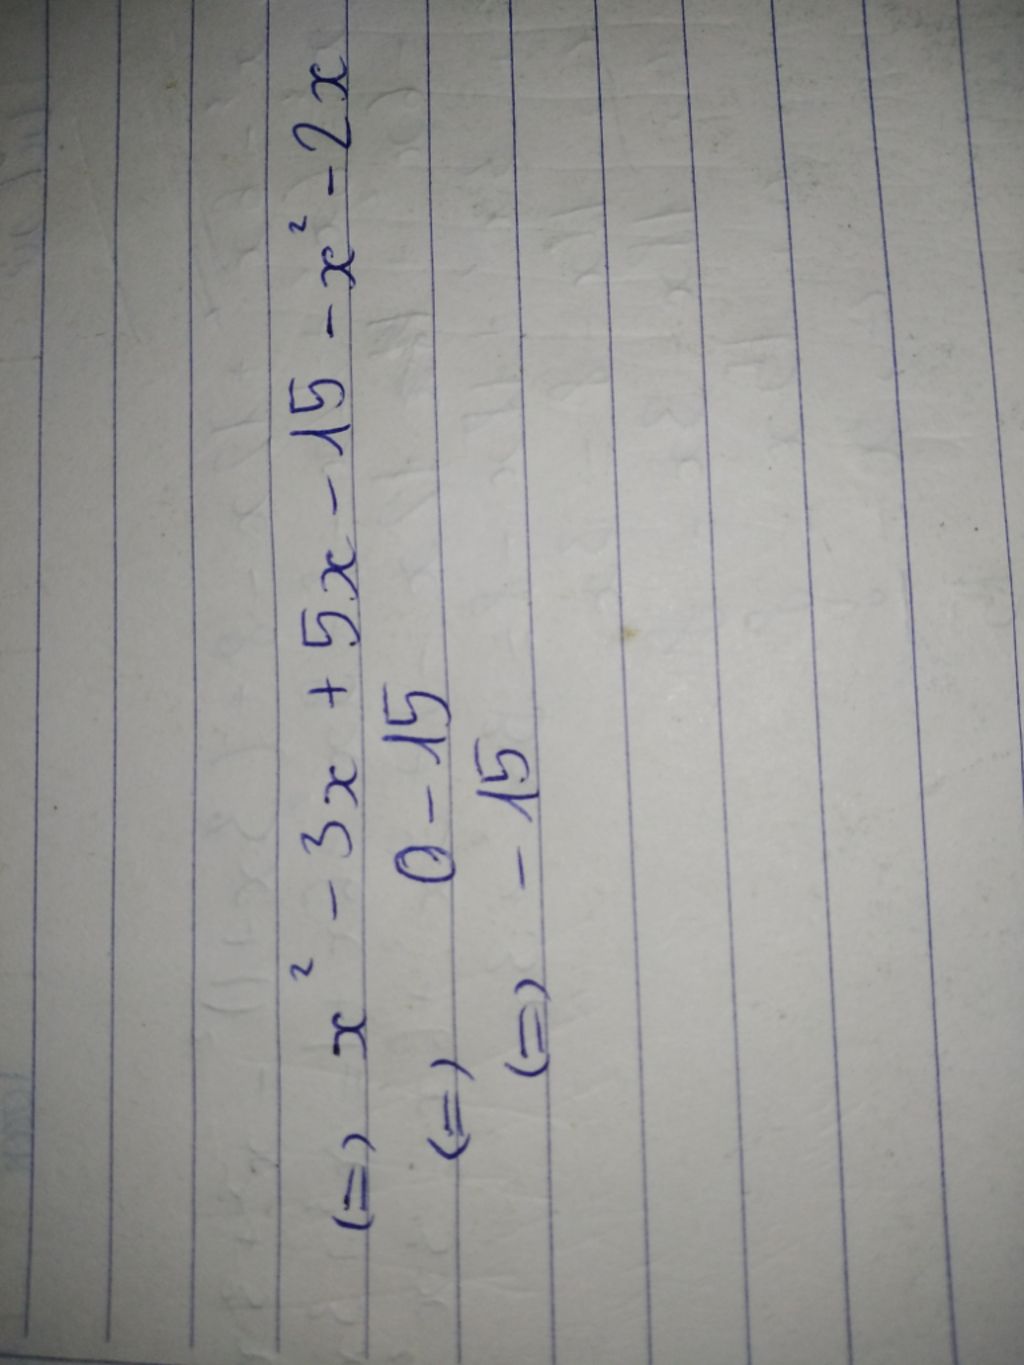 (=) x² - 3x + 5x - 15 - x² - 2x
(=) 0 - 15
(=) - 15